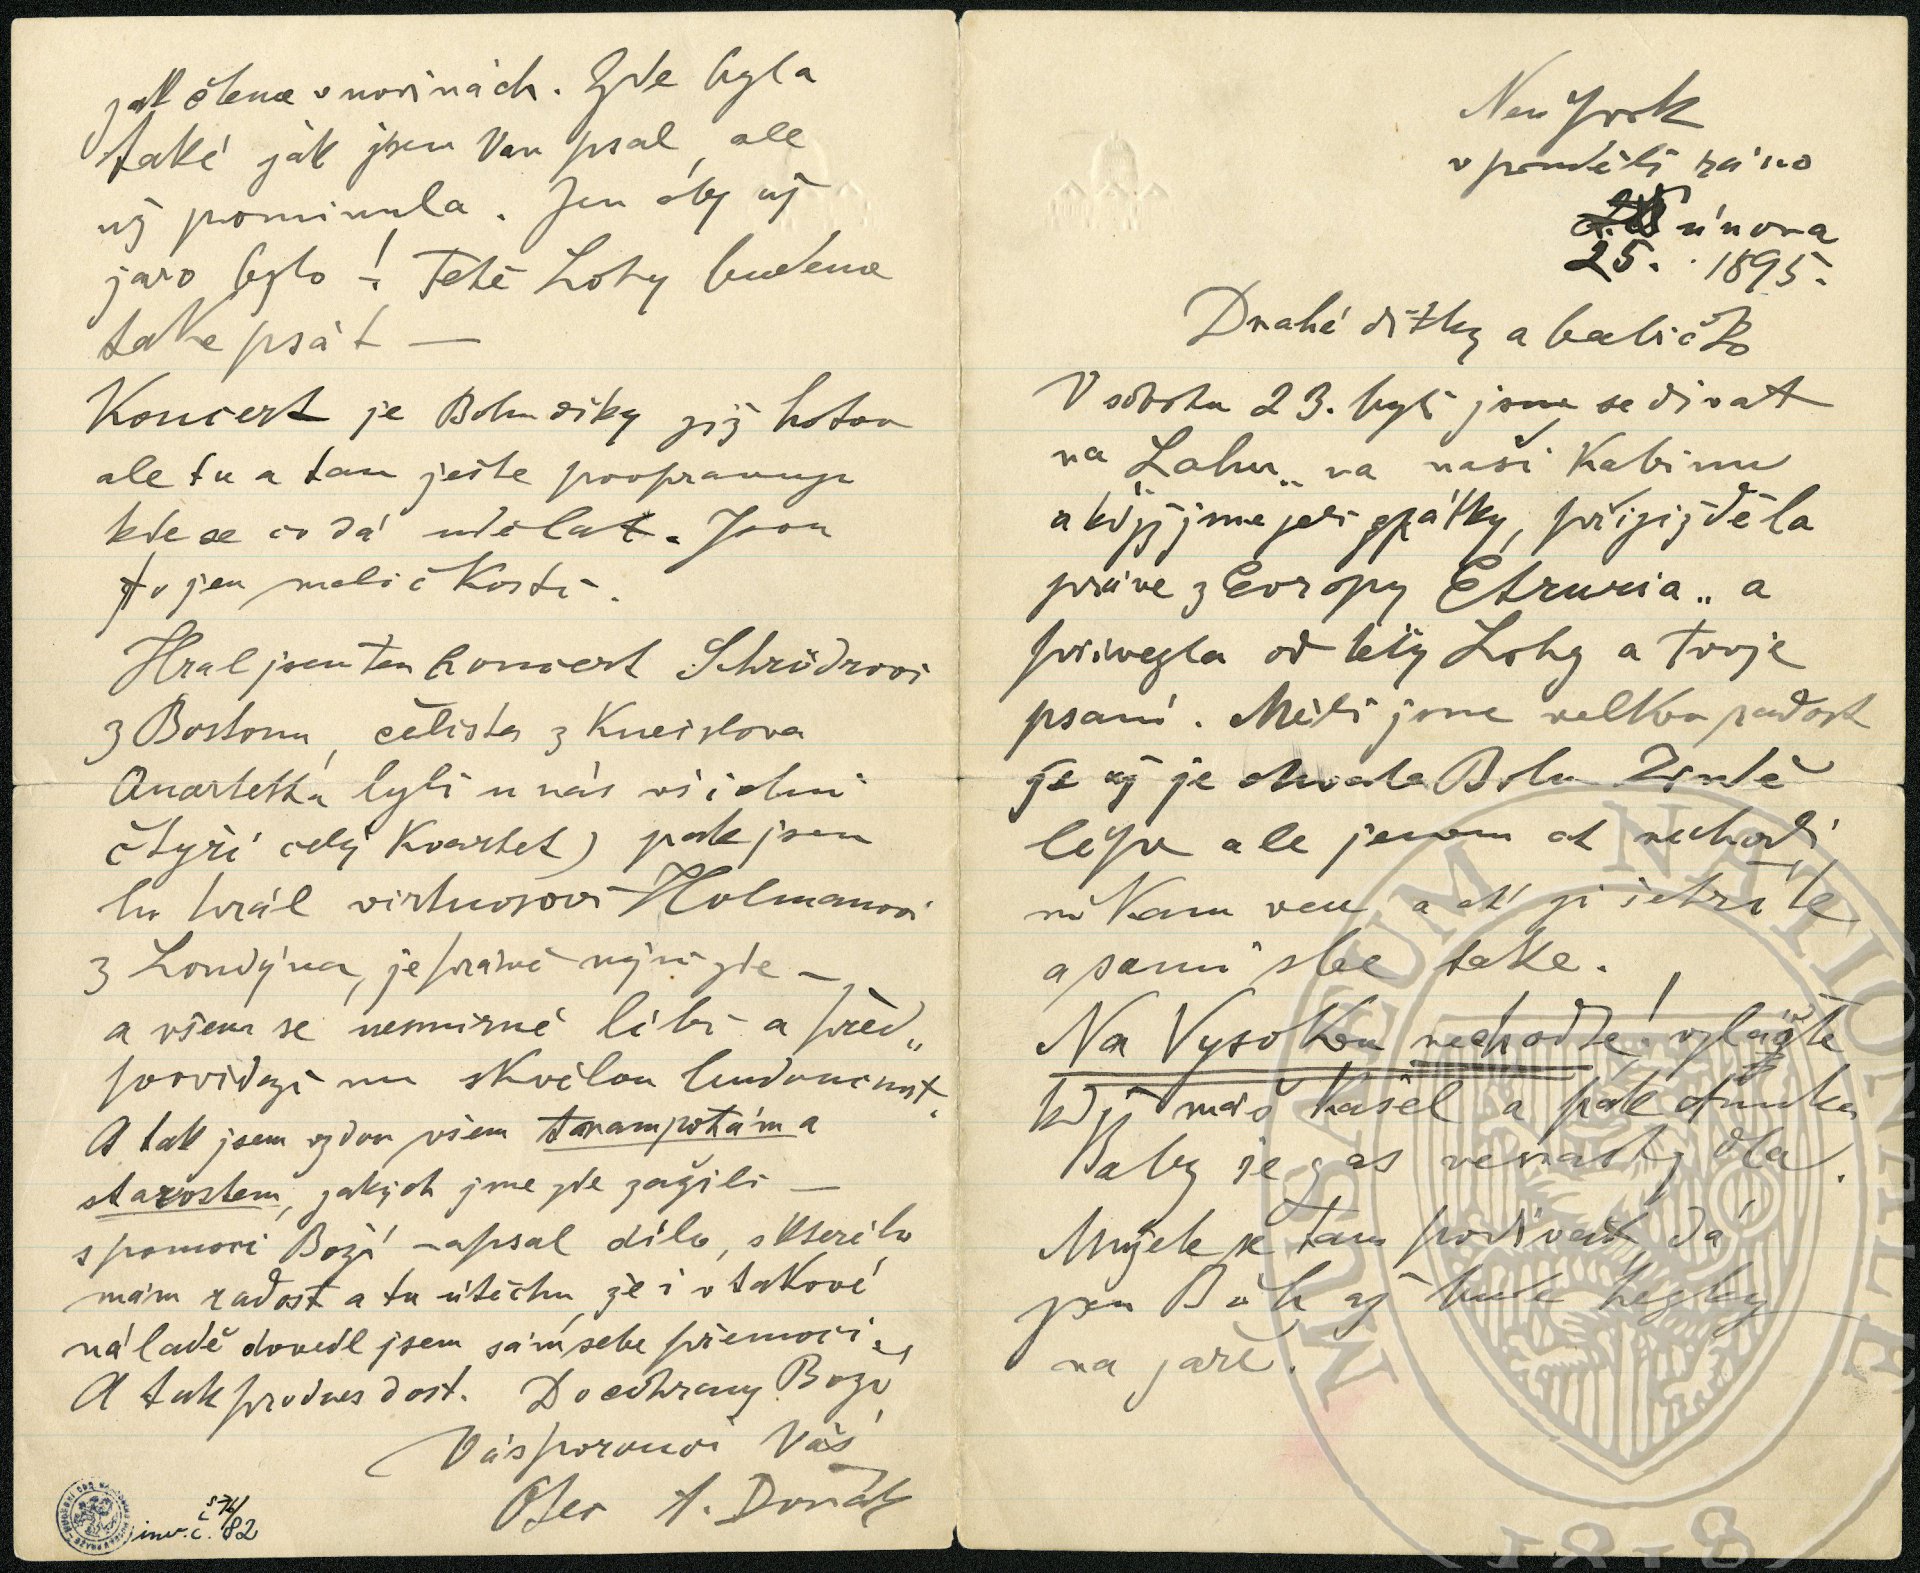 New York
v pondělí ráno
února
25. 1895.
Drahé dítky a babičko
V sobotu 23. byli jsme se dívat
na „Lahn„ na naši kabinu
a když jsme jeli zpátky, přijížděla
práve z Evropy Etruria„ a
přivezla od tety Lohy a tvoje
psaní. Měli jsme velkou radost
že už je chvala Bohu Zindě
lépe ale jenom at nechodí
nikam ven a at ji šetříte
a sami sebe take.
Na Vysokou nechodte! vzlášte
když máš kašel a pak
aby se zas nenastydla.
Mužete se tam podívat, dá
pan Bůh až bude hezky
na jaře.
jak čteme v novinách. Zde byla
také jak jsem Vam psal, ale
už pominula. Jen aby už
jaro bylo! Tetě Lohy budeme
take psát —
Koncert je Bohu díky již hotov
ale tu a tam ješte poopravuji
kde se co dá udělat. Jsou
to jen maličkosti.
Hral jsem ten koncert Schrödrovi
z Bostonu, čelista z Kneislova
Quartetta byli u nás všichni
čtyři celý Kvartet) pak jsem
ho hrál virtuosovi Holmanovi
z Londýna, je právě nyní zde —
a všem se nesmírně líbí a před„
povidají mu skvělou budoucnost.
A tak jsem vzdor všem trampotám a
starostem, jakých jsme zde zažili —
s pomocí Boží napsal dílo, s kterého
mám radost a tu útěchu, že i v takové
náladě dovedl jsem sám sebe přemoci.
A tak prodnes dost. Do ochrany Boží
Vás poroučí Váš
Otec A. Dvořák
inv. č. 82
MUSEUM NATIONALE
1818